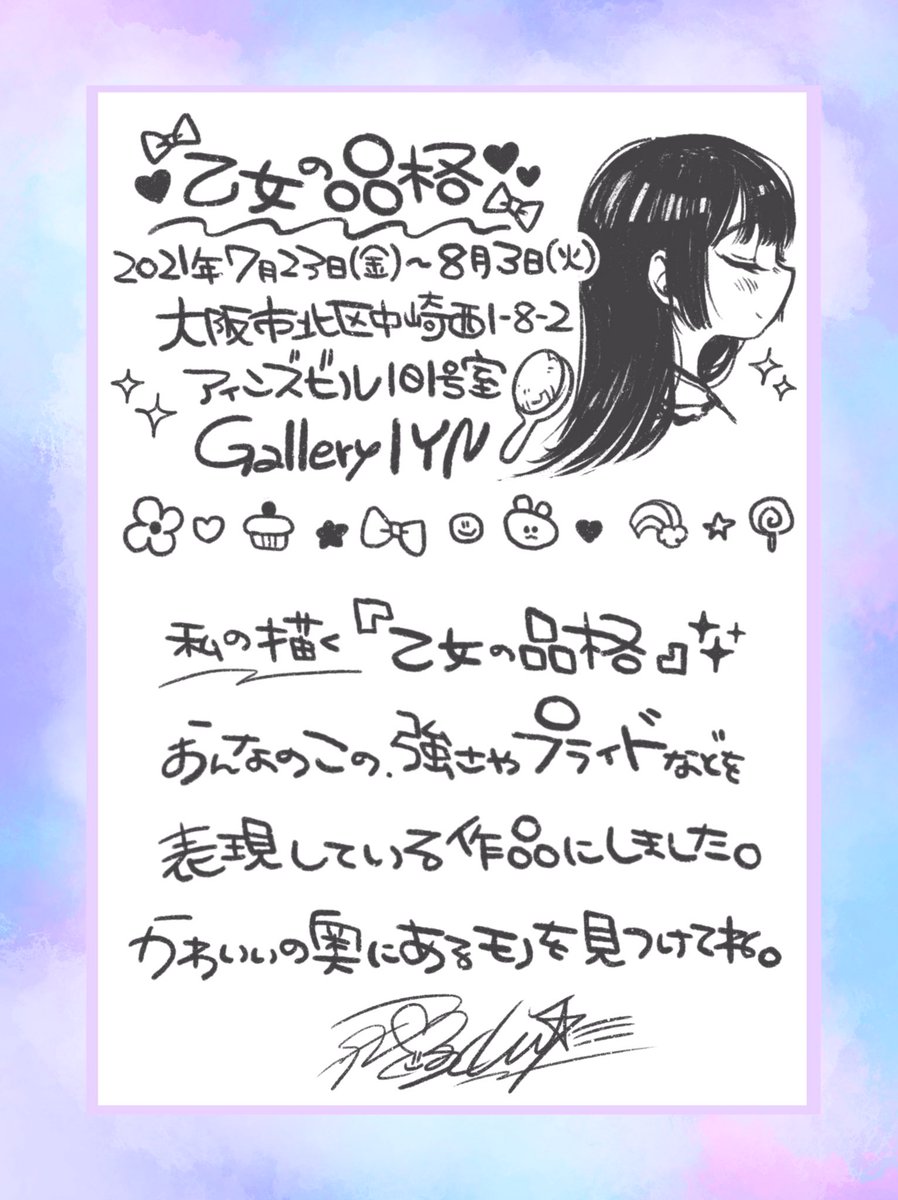 乙女の品格
2021年7月23日(金)～8月3日(火)
大阪市北区中崎西1-8-2
アインズビル101号室
Gallery IYN
私の描く『乙女の品格』
おんなのこの、強さやプライドなどを
表現している作品にしました。
かわいいの奥にあるモノを見つけてね。